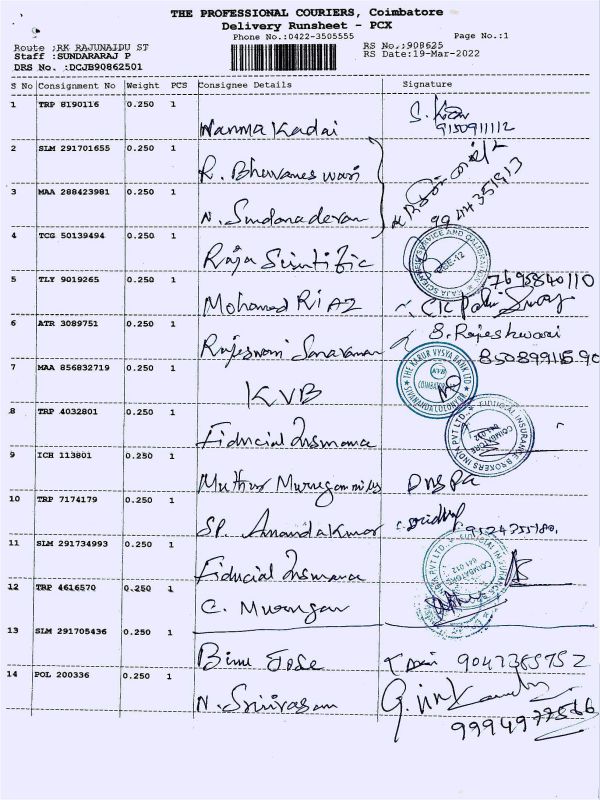 THE PROFESSIONAL COURIERS, Coimbatore
Delivery Runsheet - PCX
Phone No.:0422-3505555
Page No.:1
Route :RK RAJUNAIDU ST
RS No.:908625
Staff :SUNDARARAJ P
RS Date:19-Mar-2022
DRS No. :DCJB90862501
S No Consignment No Weight PCS Consignee Details Signature
1 TRP 8190116 0.250 1
Nanma Kadai 9150911112
2 SLM 291701655 0.250 1
R. Bhuvaneswari
3 MAA 288423981 0.250 1
N. 9944351913
4 TCG 50139494 0.250 1
Raja Scientific
5 TLY 9019265 0.250 1
Mohamed RIAZ
6 ATR 3089751 0.250 1 S. Rajeshwari
Rajeswari Saravanan
7 MAA 856832719 0.250 1 THE KARUR VYSYA BANK LTD
KVB
8 TRP 4032801 0.250 1
Fiducial Insurance
9 ICH 113801 0.250 1
Muthu Murugan
10 TRP 7174179 0.250 1
SP. Anandakumar
11 SLM 291734993 0.250 1
Fiducial Insurance
12 TRP 4616570 0.250 1
C. Murugan
13 SLM 291705436 0.250 1
Binu Jose 9047365752
14 POL 200336 0.250 1
N. Srinivasan
9994977566